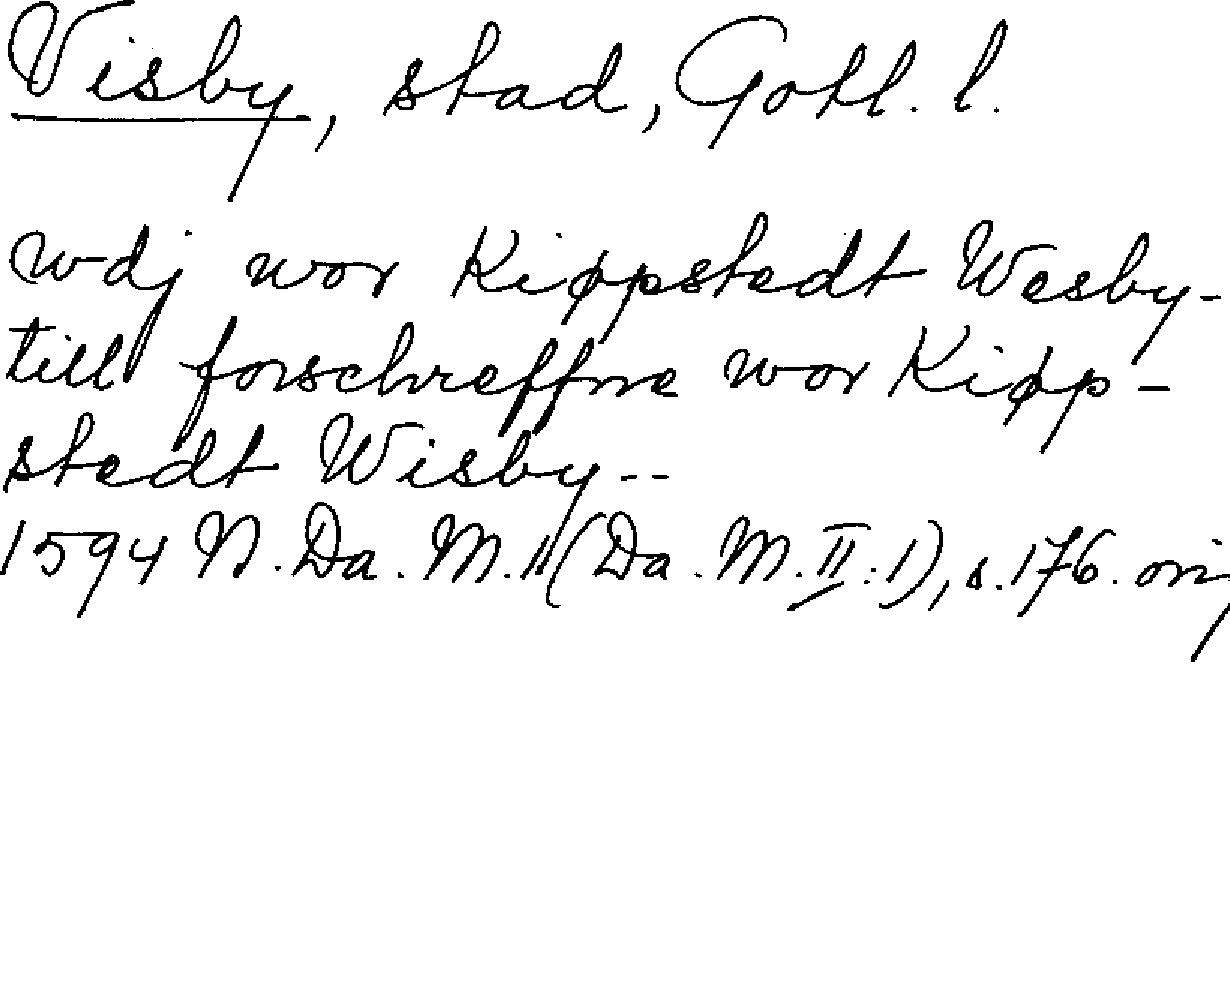 Visby, stad, Gotl. l.
wdj wor Kippstedt Wesby-
till forschreffne wor Kipp-
stedt Wisby--
1594 N. Da. M. II (Da. M. II:1), s. 176. orig